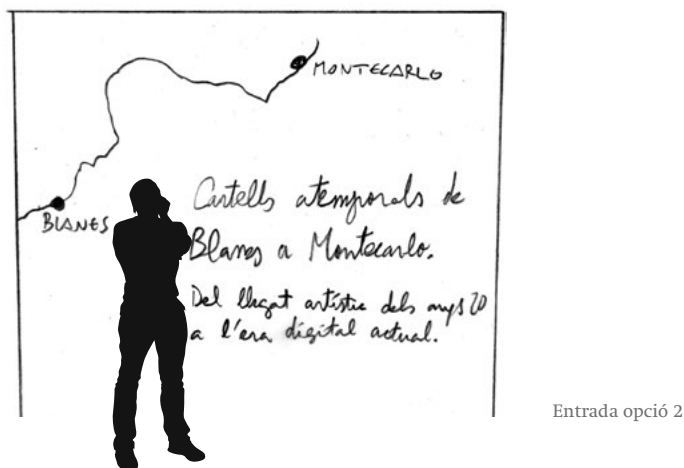 MONTECARLO
BLANES
Cartells atemporals de
Blanes a Montecarlo.
Del llegat artístic dels anys 20
a l'era digital actual.
Entrada opció 2